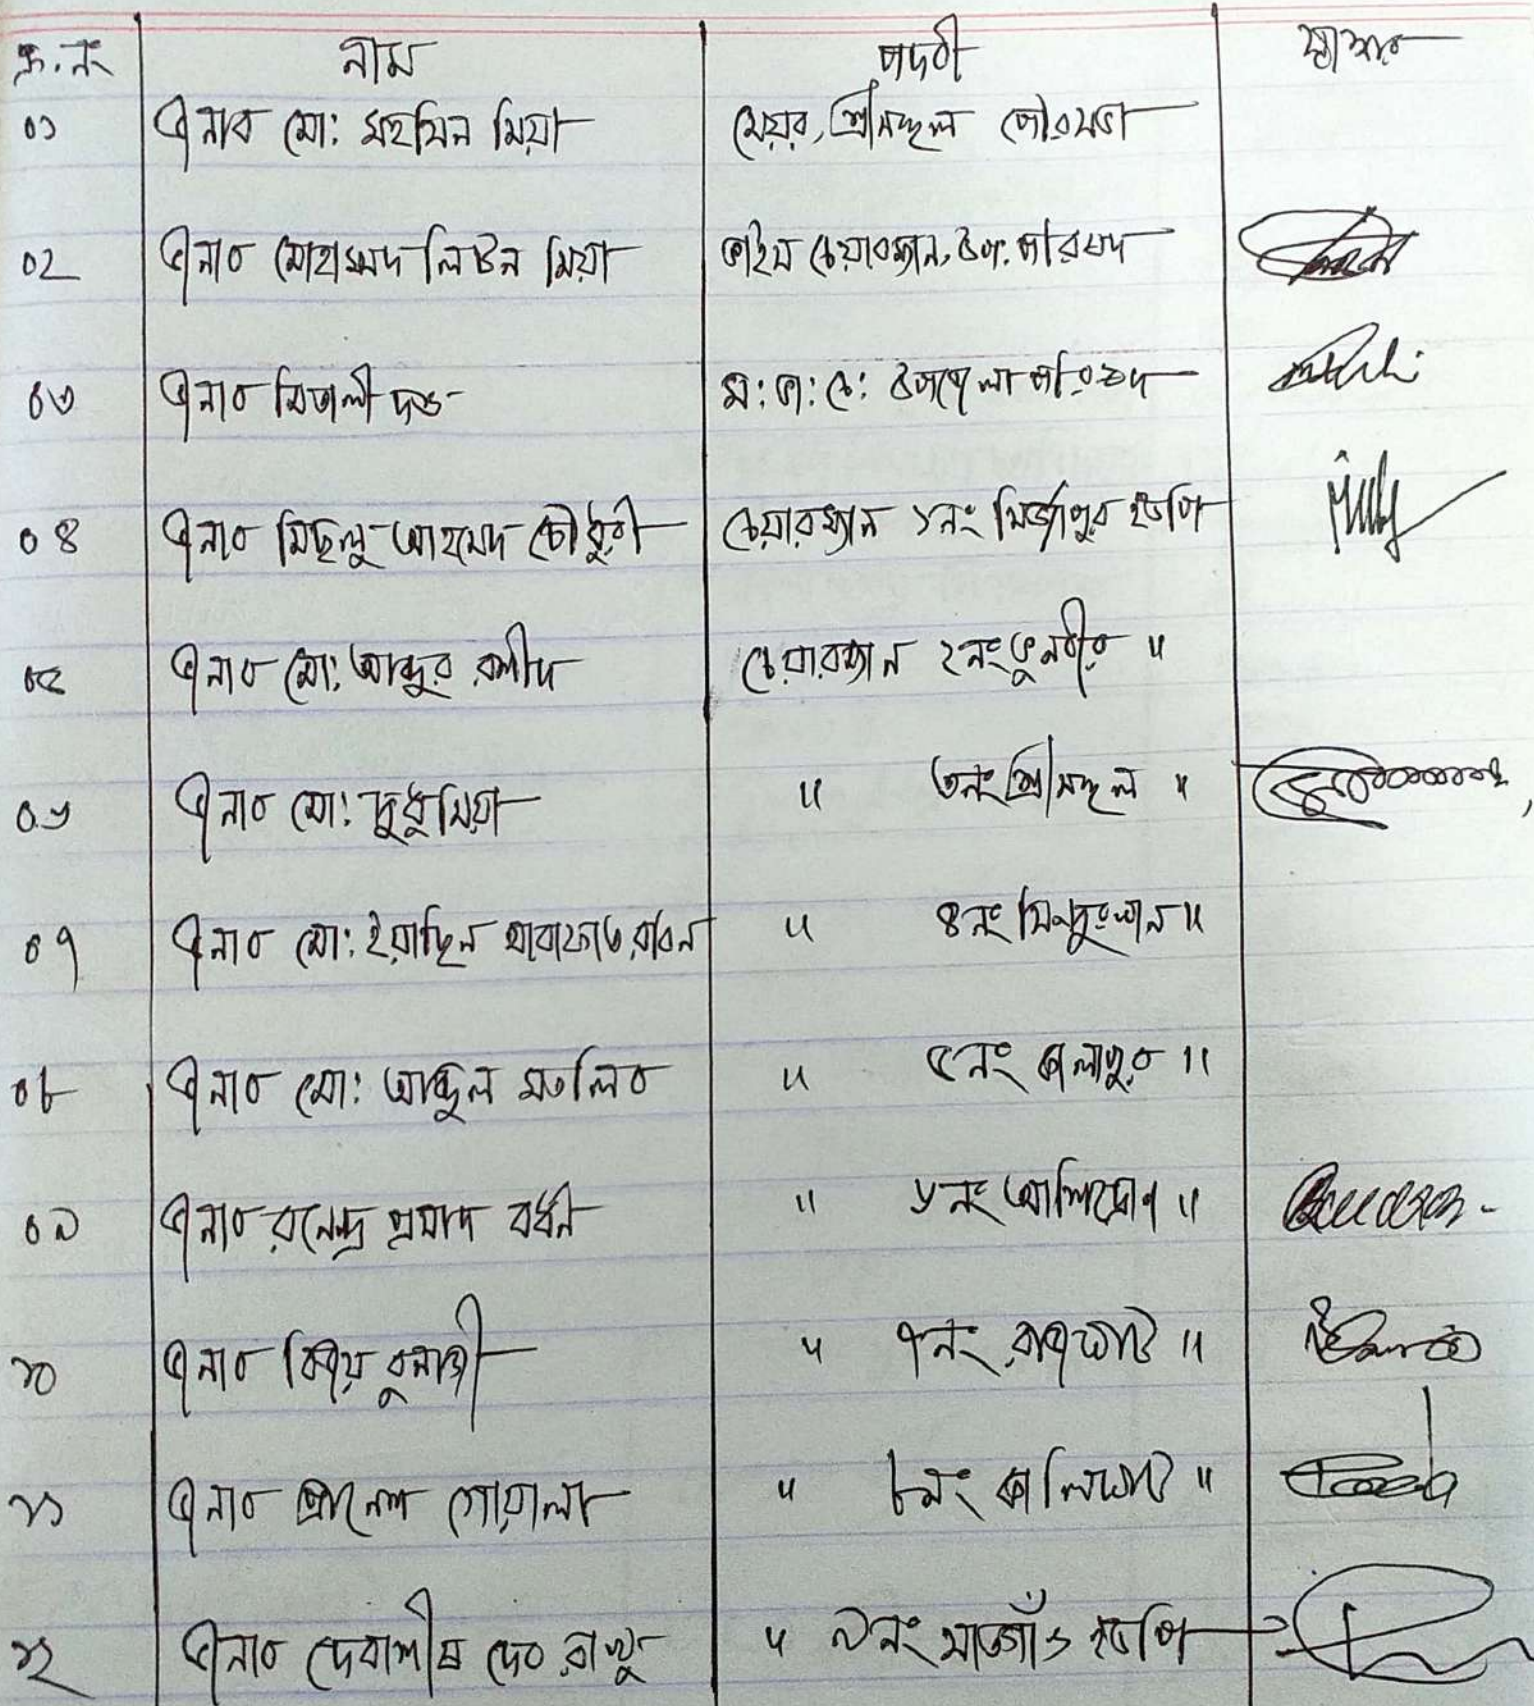 ক্র.নং নাম পদবী স্বাক্ষর
০১ জনাব মো: মহসিন মিয়া মেয়র, শ্রীমঙ্গল পৌরসভা
০২ জনাব মোহাম্মদ লিটন মিয়া ভাইস চেয়ারম্যান, উপ: পরিষদ
০৩ জনাব মিতালী দত্ত ম: ভা: চে: উপজেলা পরিষদ
০৪ জনাব মিছলু আহমেদ চৌধুরী চেয়ারম্যান ১নং মির্জাপুর ইউপি
০৫ জনাব মো: আব্দুর রশীদ চেয়ারম্যান ২নং ভুনবীর "
০৬ জনাব মো: দুধু মিয়া " ৩নং শ্রীমঙ্গল "
০৭ জনাব মো: ইয়াছিন আরাফাত রবিন " ৪নং সিন্দুরখান "
০৮ জনাব মো: আব্দুল মতলিব " ৫নং কালাপুর "
০৯ জনাব রনেন্দ্র প্রসাদ বর্ধন " ৬নং আশিদ্রোণ "
১০ জনাব বিজয় বুনার্জী " ৭নং রাজঘাট "
১১ জনাব প্রানেশ গোয়ালা " ৮নং কালিঘাট "
১২ জনাব দেবাশীষ দেব রাখু " ৯নং সাতগাঁও ইউপি